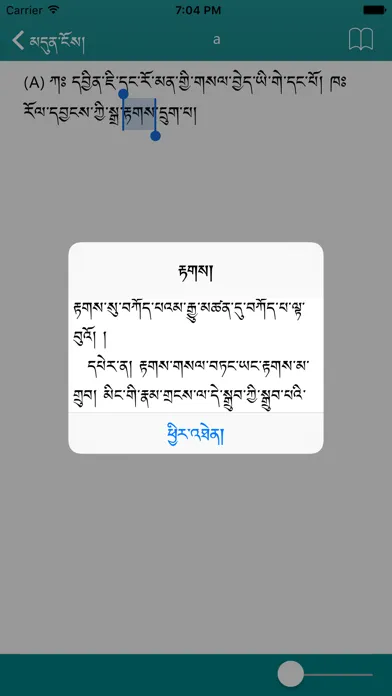 Carrier 7:04 PM
མདུན་ངོས། a
(A) ཀ༔ དབྱིན་ཇི་དང་རོ་མན་གྱི་གསལ་བྱེད་ཡི་གེ་དང་པོ། ཁ༔
རོལ་དབྱངས་ཀྱི་སྒྲ་རྟགས་དྲུག་པ།
རྟགས།
རྟགས་སུ་བཀོད་པའམ་རྒྱུ་མཚན་དུ་བཀོད་པ་ལྟ་
བུའོ། །
དཔེར་ན། རྟགས་གསལ་བཏང་ཡང་རྟགས་མ་
གྲུབ། མིང་གི་རྣམ་གྲངས་ལ་དེ་སྒྲུབ་ཀྱི་སྒྲུབ་པའི་
ཕྱིར་འཐེན།